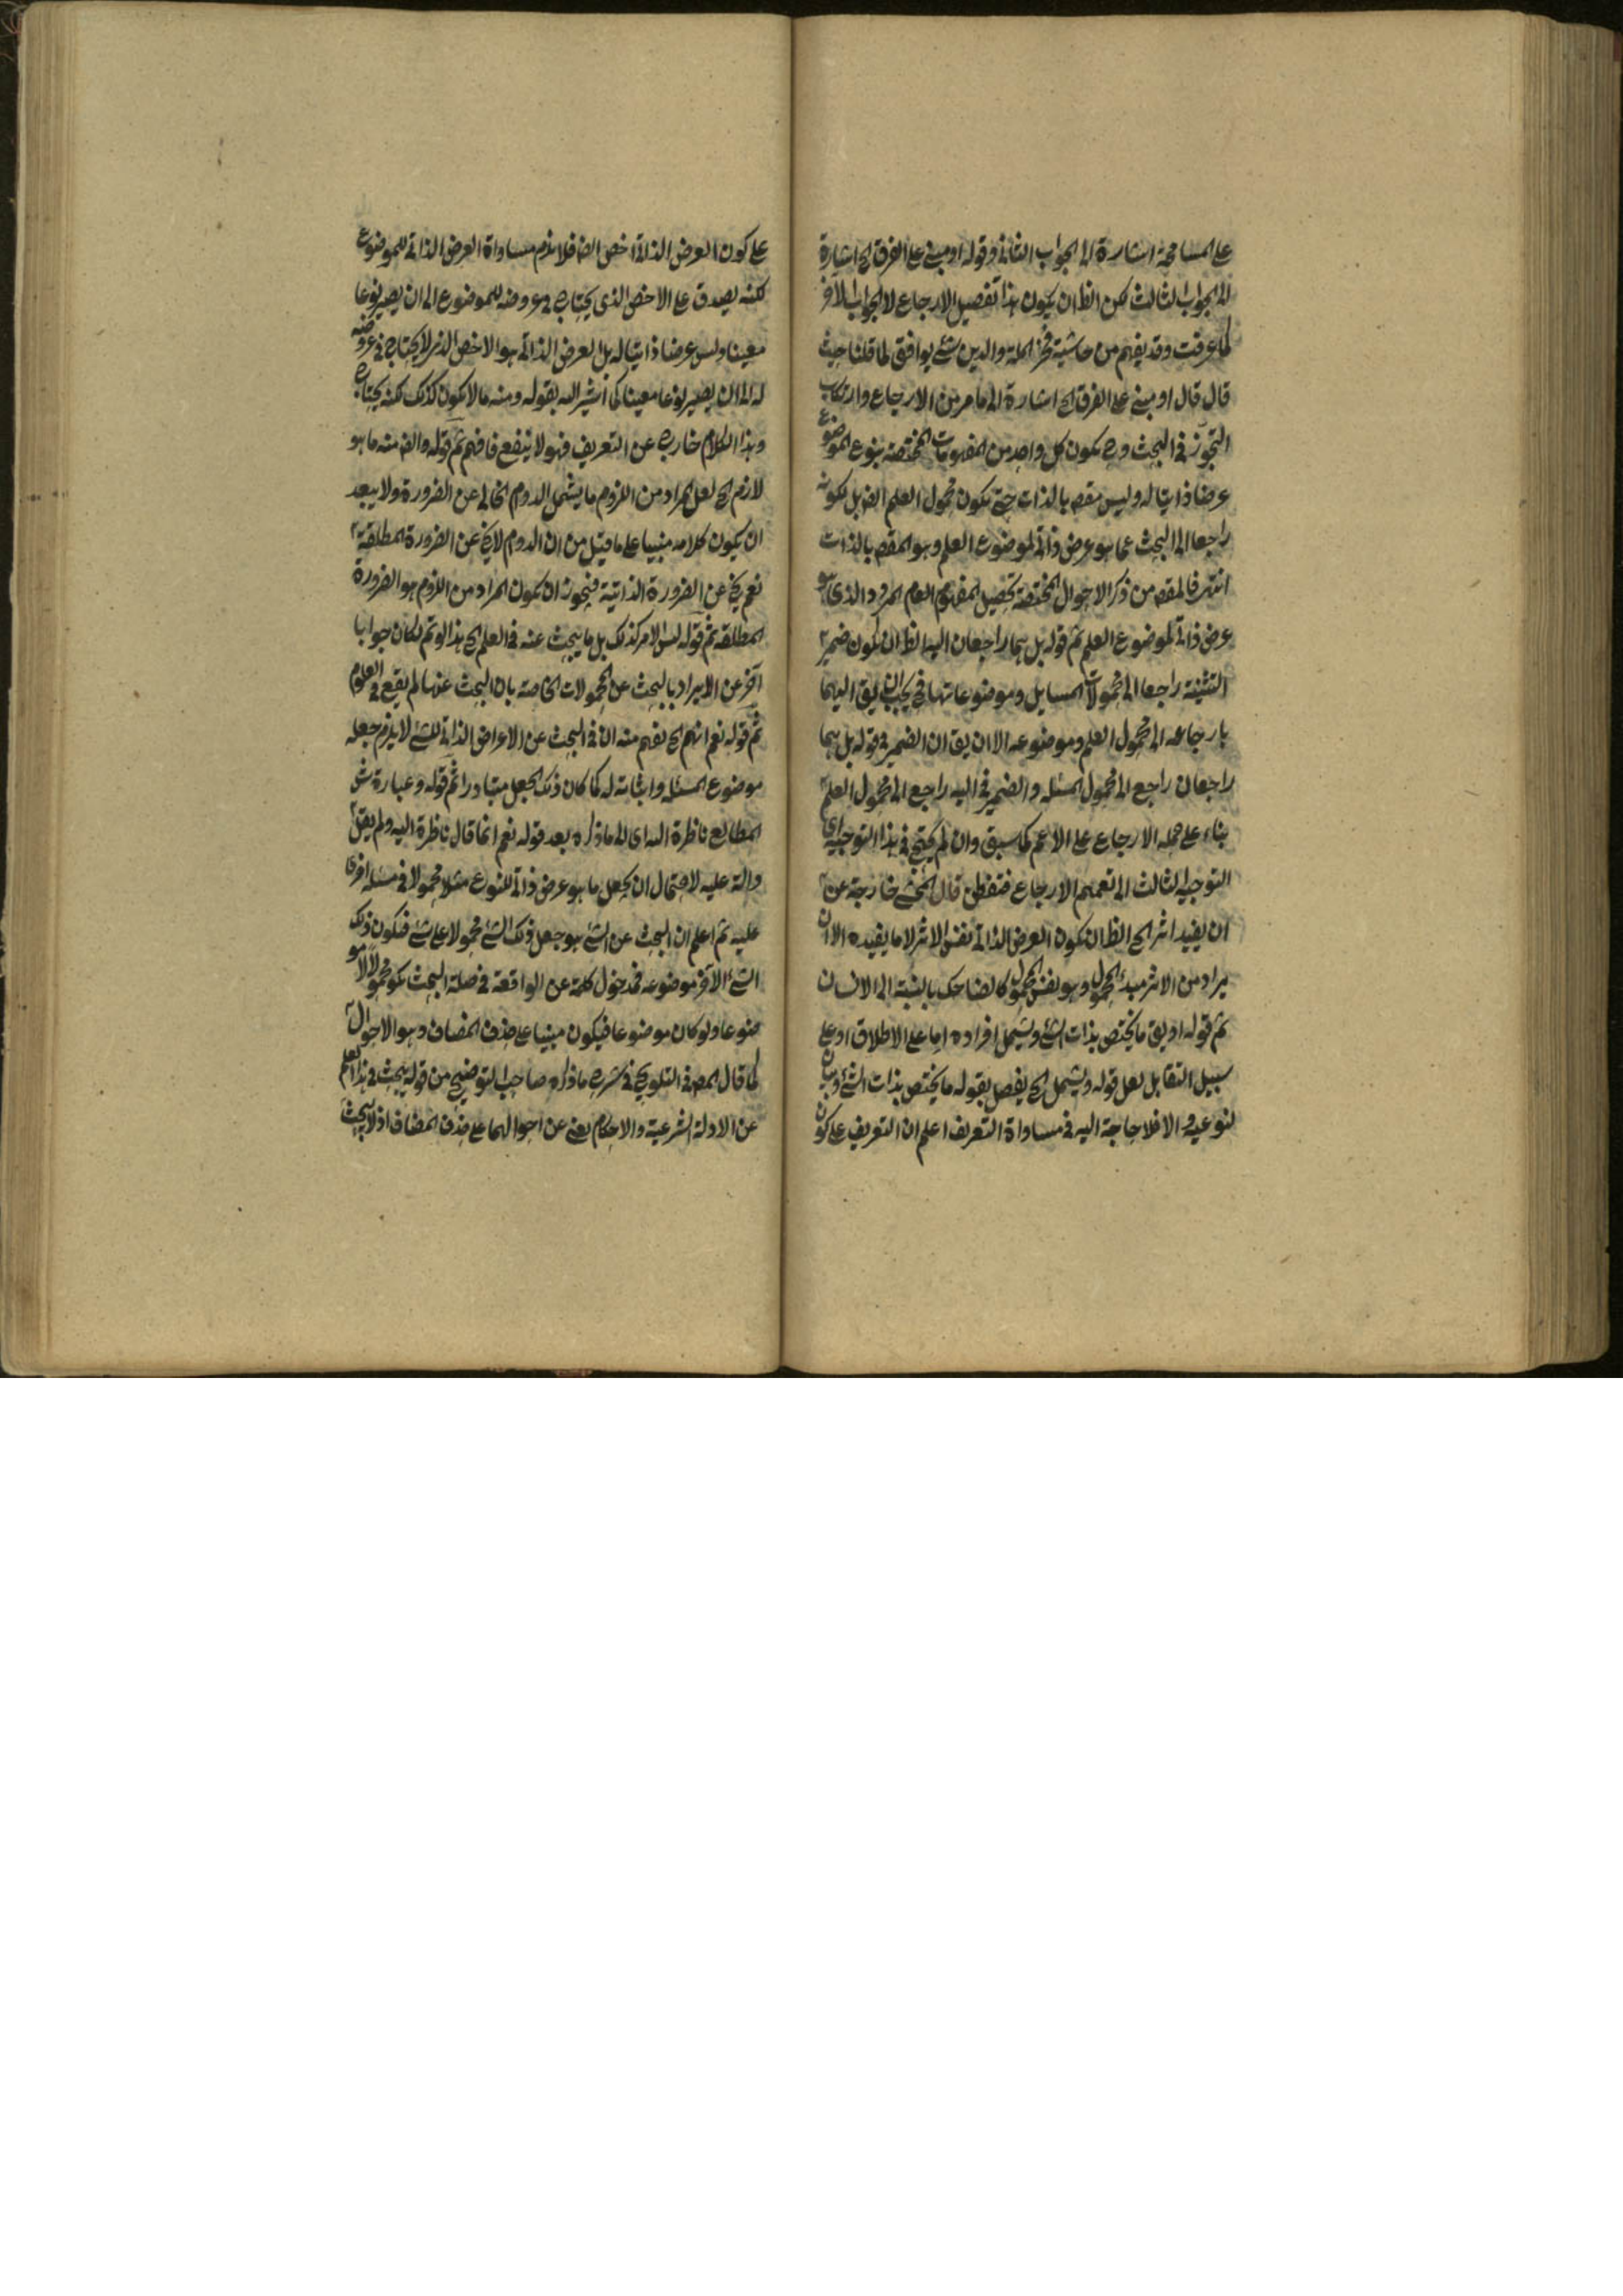 على المسامحة اشارة الى الجواب الثانى وقوله او مبنى على الفرق الخ اشارة
الى الجواب الثالث لكن الظ ان يكون هذا تفصيل الارجاع لا الجواب الآخر
كما عرفت وقد يفهم من حاشية فخر الملة والدين شئ يوافق لما قلنا حيث
قال قال او مبنى على الفرق الخ اشارة الى ما مر من الارجاع وارتكاب
التجوز فى البحث وح يكون كل واحد من المفهومات المختصة بنوع الموضوع
عرضا ذاتيا له وليس مقص بالذات حتى يكون محمول العلم ايض بل يكونه
راجعا الى البحث عما هو عرض ذاتى لموضوع العلم وهو المقص بالذات
انتهى فالمقص من ذكر الاحوال المختصة تحصيل المفهوم العام المردد الذى هو
عرض ذاتى لموضوع العلم ثم قوله بل هما راجعان اليه الظ ان يكون ضمير
التثنية راجعا الى محمولات المسايل وموضوعاتها فح يجب ان يق اليهما
بارجاعه الى محمول العلم وموضوعه الا ان يق ان الضمير فى قوله بل هما
راجعان راجع الى محمول المسئله والضمير فى اليه راجع الى محمول العلم
بناء على حمله الارجاع على الاعم كما سبق وان لم يحتج فى هذا التوجيه اى
التوجيه الثالث الى تعميم الارجاع فتفطن قال المحشى خارجة عن
ان يفيد اثر الخ الظ ان يكون العرض الذاتى نفس الاثر لا ما يفيده الا ان
يراد من الاثر مبدء المحمول وهو نفس المحمول كالضاحك بالنسبة الى الانسان
ثم قوله او يق ما يختص بذات الشئ ويشمل افراده اما على الاطلاق او على
سبيل التقابل لعل قوله ويشمل الخ يفصل بقوله ما يختص بذات الشئ وبيان
لنوعيه والا فلا حاجة اليه فى مساواة التعريف اعلم ان التعريف على كون
على كون العرض الذاتى اخص ايضا فلا يلزم مساواة العرض الذاتى للموضوع
لكنه يصدق على الاخص الذى يحتاج فى عروضه للموضوع الى ان يصير نوعا
معينا وليس عرضا ذاتيا له بل العرض الذاتى هو الاخص الذى لا يحتاج فى عروضه
له الى ان يصير نوعا معينا كما اشير اليه بقوله ومنه ما لا يكون كذلك لكنه يحتاج
وهذا الكلام خارج عن التعريف فهو لا ينفع فافهم ثم قوله وايض منه ما هو
لازم الخ لعل المراد من اللزوم ما يشمل الدوام الخالى عن الضرورة ولا يبعد
ان يكون كلامه مبنيا على ما قيل من ان الدوام لا يخ عن الضرورة المطلقة
نعم يخ عن الضرورة الذاتية فيجوز ان يكون المراد من اللزوم هو الضرورة
المطلقه ثم قوله ليس الامر كذلك بل ما يبحث عنه فى العلم الخ هذا لو تم لكان جوابا
آخر عن الايراد بالبحث عن المحمولات الخاصة بان البحث عنها لم يقع فى العلوم
ثم قوله نعم انهم الخ يفهم منه ان فى البحث عن الاعراض الذاتى للشئ لا يلزم جعله
موضوع المسئله واثباته له كما كان ذلك الجعل متبادرا ثم قوله وعبارة ش
المطالع ناظرة اليه اى الى ما ذكره بعد قوله نعم انما قال ناظرة اليه ولم يقل
دالة عليه لاحتمال ان يجعل ما هو عرض ذاتى للنوع مثلا محمولا فى مسئله اخرى
عليه ثم اعلم ان البحث عن الشئ هو جعل ذلك الشئ محمولا على شئ فيكون ذلك
الشئ الآخر موضوعه فمدخول كلمة عن الواقعة فى صلة البحث يكو محمولا لا مو
ضوعا ولو كان موضوعا فيكون مبنيا على حذف المضاف وهو الاحوال
كما قال المص فى التلويح فى شرح ما ذكره صاحب التوضيح من قوله يبحث فى هذا العلم
عن الادلة الشرعية والاحكام يعنى عن احوالهما على حذف المضاف اذ لا يبحث